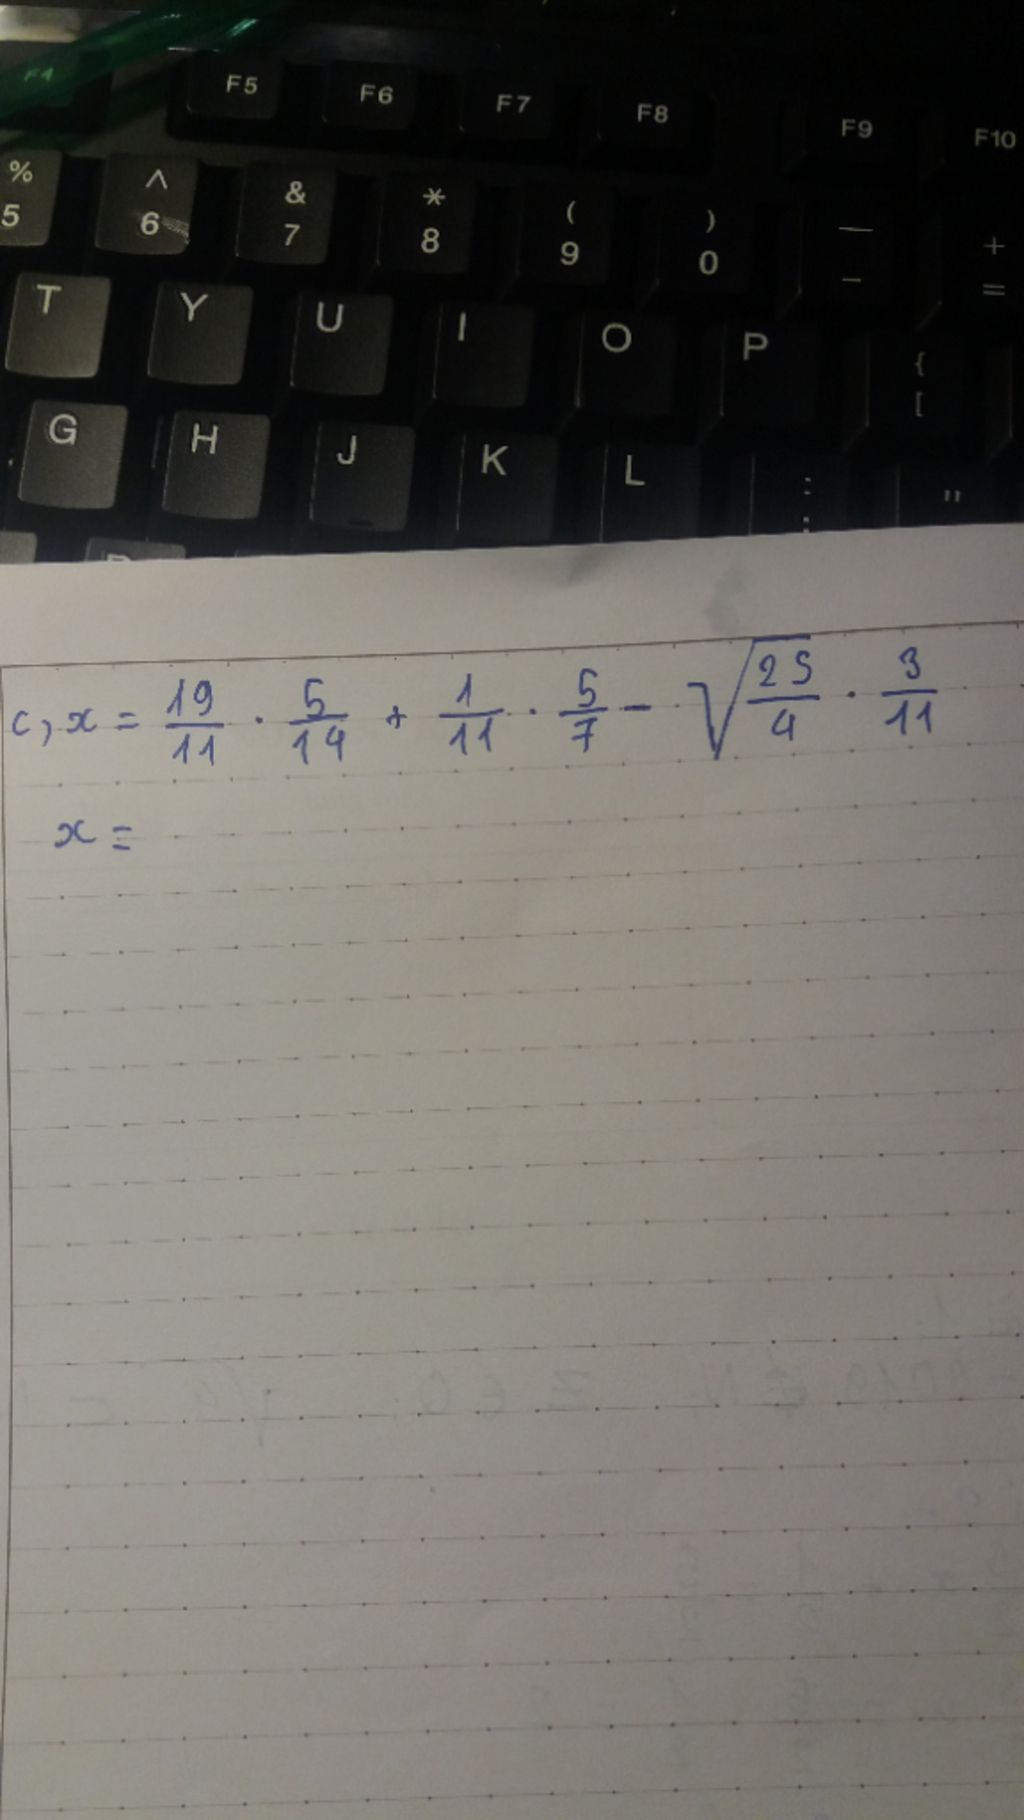 F4 F5 F6 F7 F8 F9 F10
% 5 ^ 6 & 7 * 8 ( 9 ) 0 — - + =
T Y U I O P { [
G H J K L : ; "
c, x = 19/11 · 5/14 + 1/11 · 5/7 - √25/4 · 3/11
x =